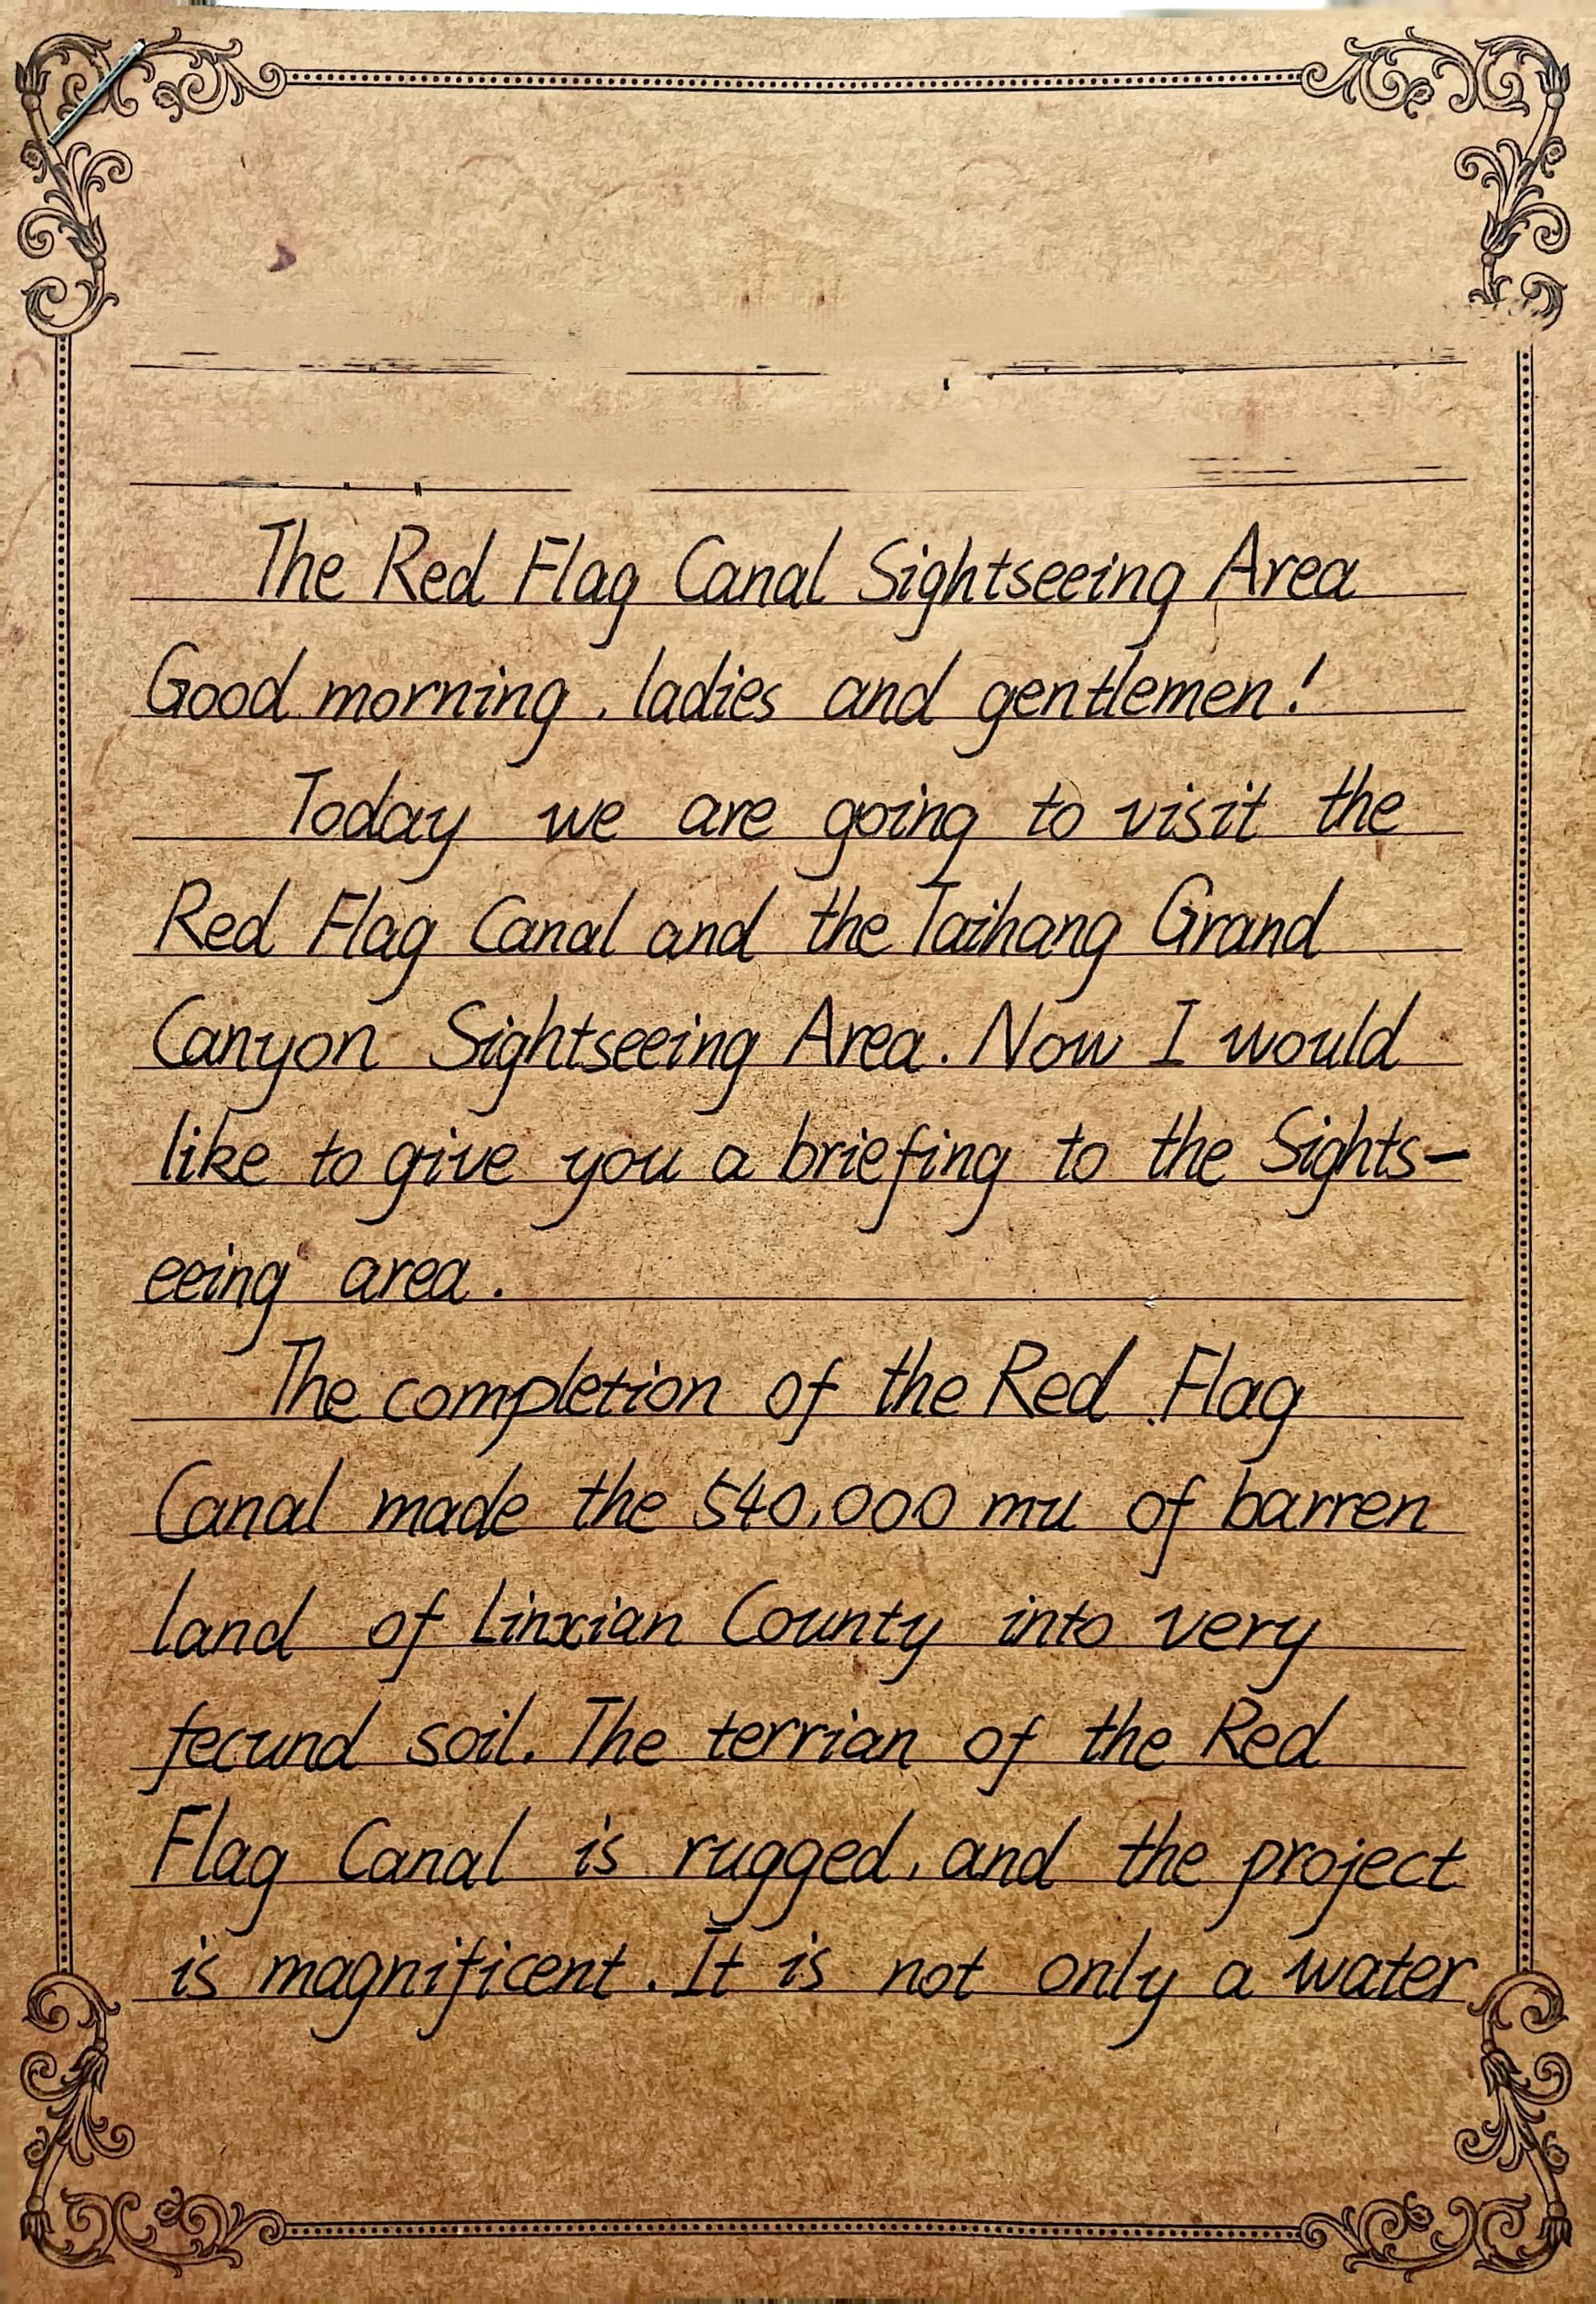 The Red Flag Canal Sightseeing Area
Good morning, ladies and gentlemen!
Today we are going to visit the
Red Flag Canal and the Taihang Grand
Canyon Sightseeing Area. Now I would
like to give you a briefing to the Sights-
eeing area.
The completion of the Red Flag
Canal made the 540,000 mu of barren
land of Linxian County into very
fecund soil. The terrian of the Red
Flag Canal is rugged, and the project
is magnificent. It is not only a water